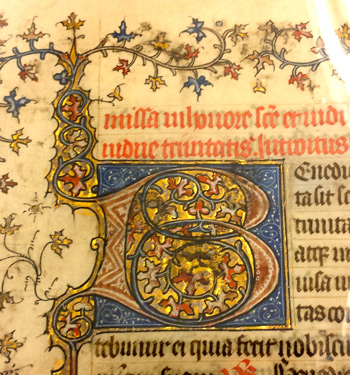 missa in honore sc̄e et indi
uidue trinitatis Introitus
BEnedi
ta sit sc
trinita
atq; in
uisa un
tas con
tebimur ei quia fecit nobiscu